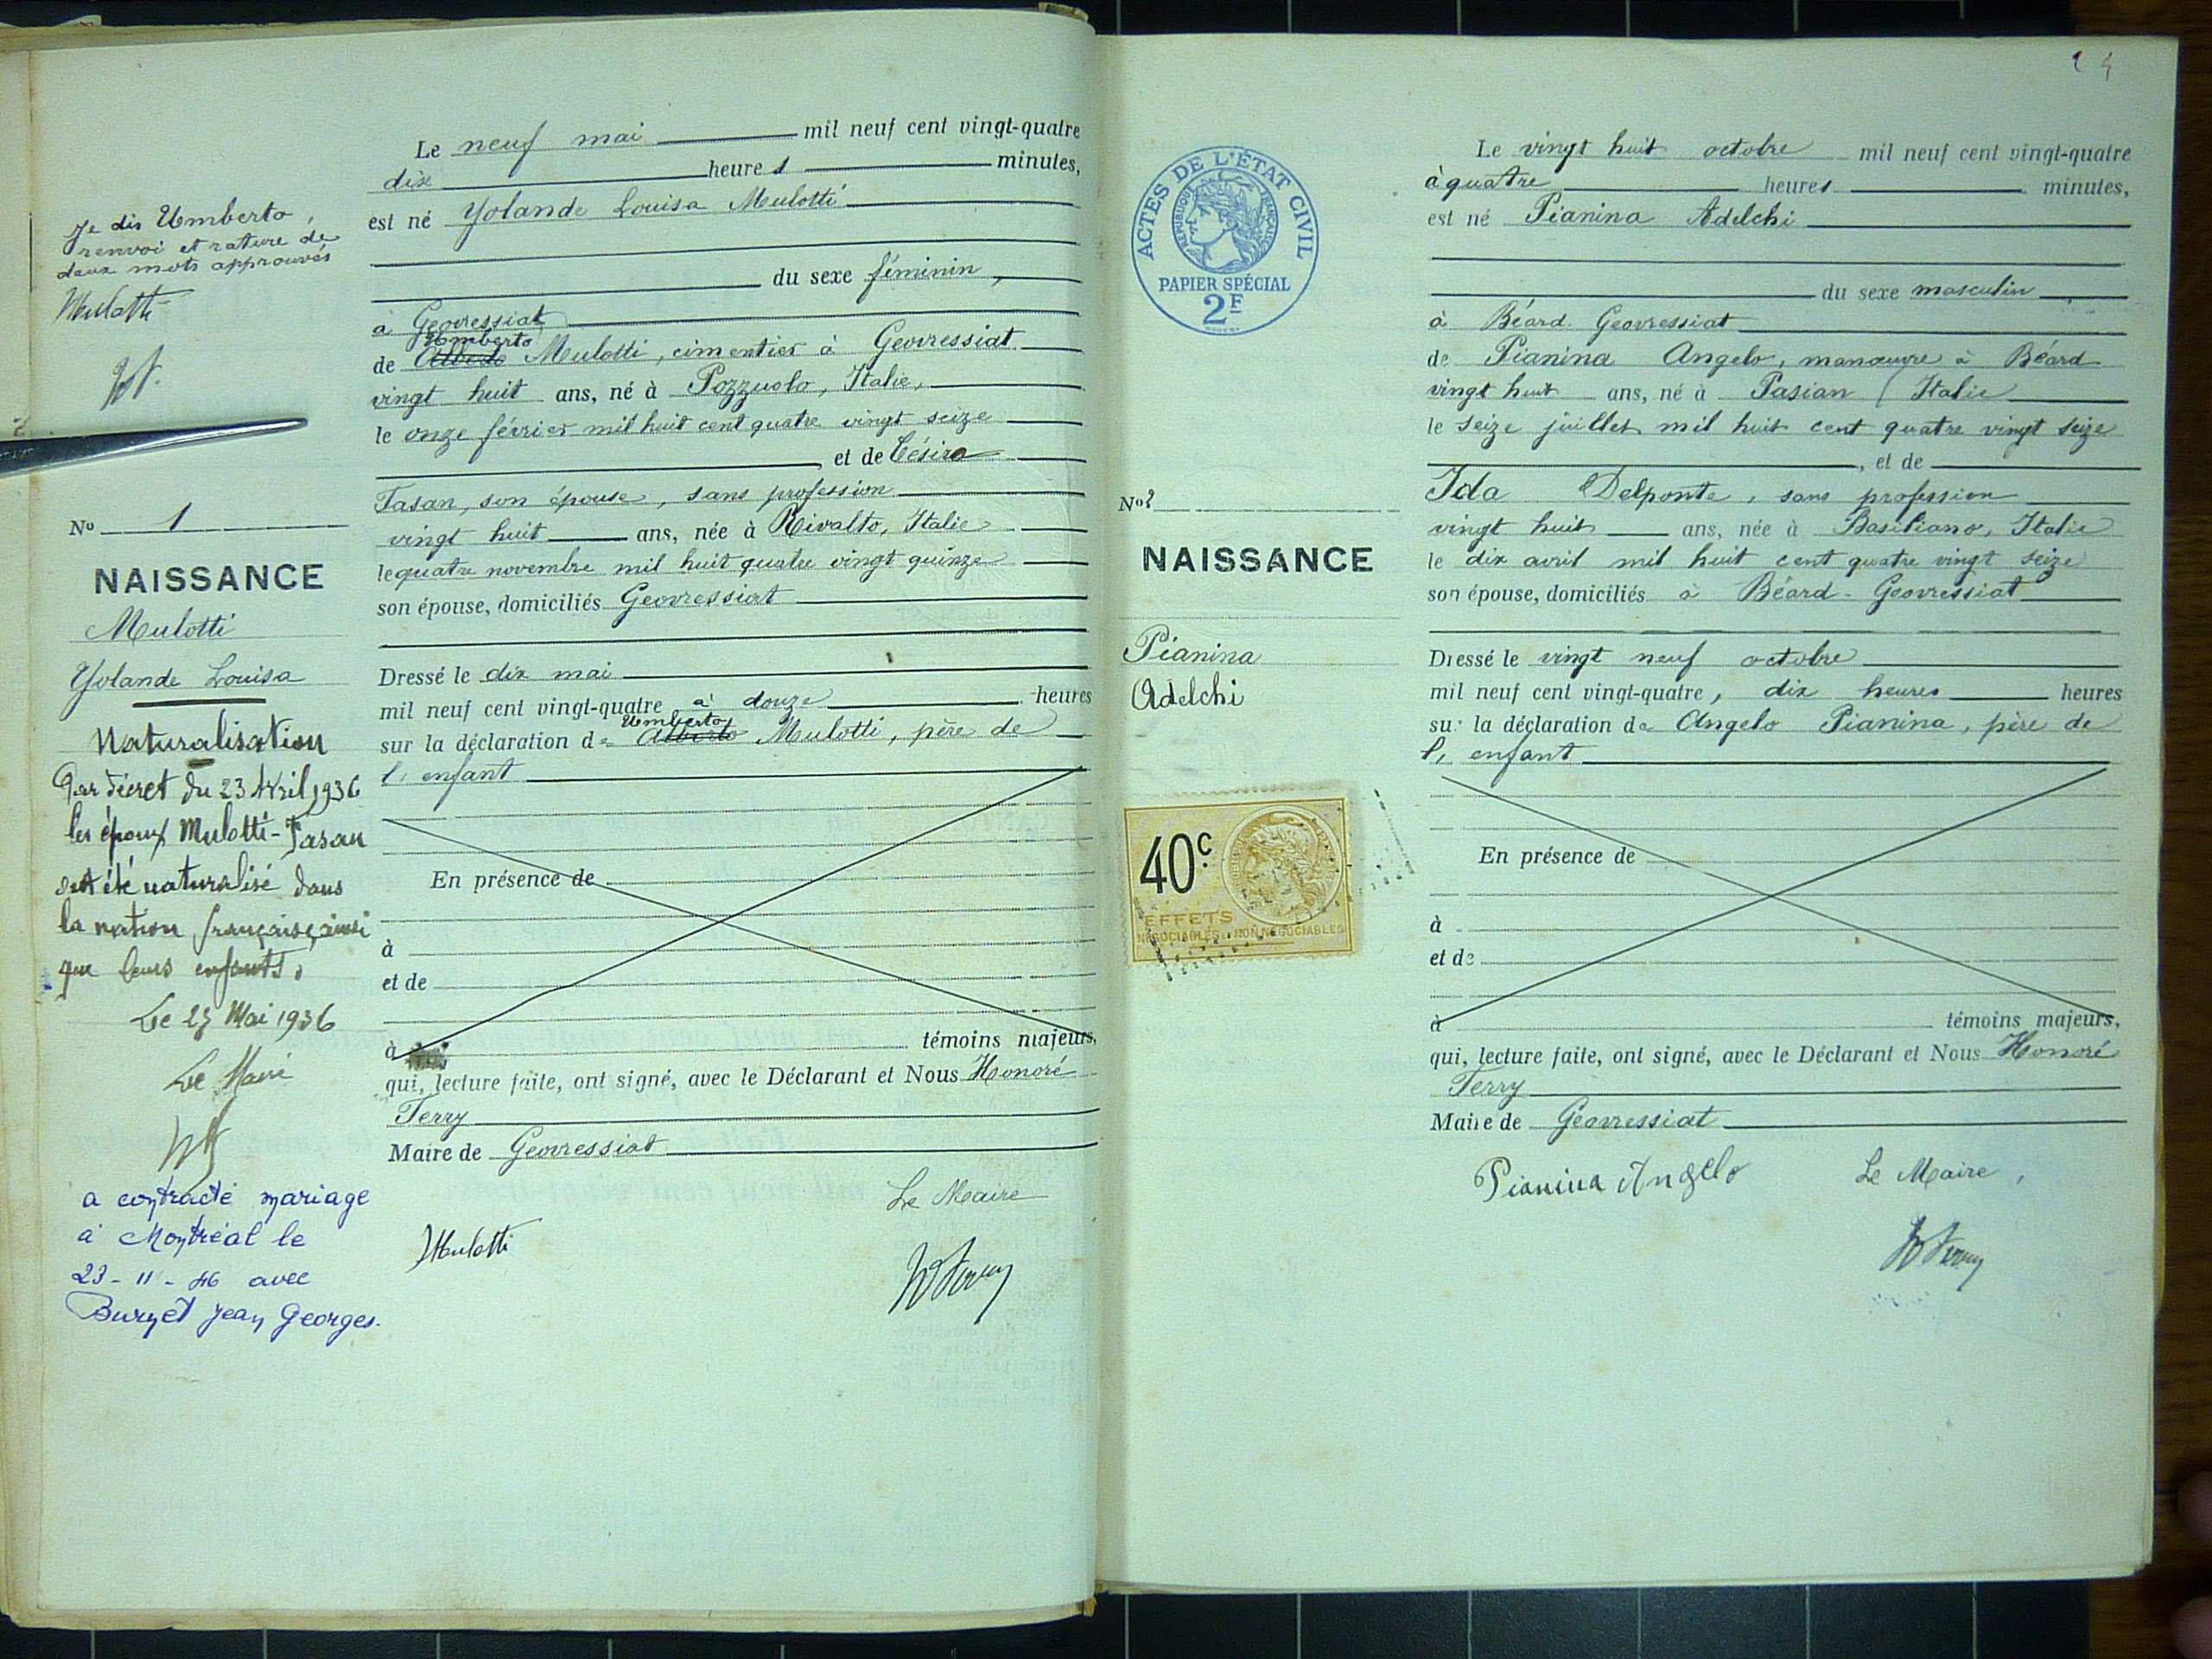 Je dis Umberto,
renvoi et rature de
deux mots approuvés
Mulotti
No 1
NAISSANCE
Mulotti
Yolande Louisa
Naturalisation
Par décret du 23 Avril 1936
les époux Mulotti-Tasan
ont été naturalisé dans
la nation française, ainsi
que leurs enfants.
Le 27 Mai 1936
Le Maire
a contracté mariage
à Montréal le
23-11-46 avec
Burnet Jean Georges.
Le neuf mai mil neuf cent vingt-quatre
dix heures minutes,
est né Yolande Louisa Mulotti
du sexe féminin,
à Geovressiat
Umberto
de Alberto Mulotti, cimentier à Geovressiat
vingt huit ans, né à Pozzuolo, Italie,
le onze février mil huit cent quatre vingt seize
, et de Césira
Tasan, son épouse, sans profession
vingt huit ans, née à Rivalto, Italie
le quatre novembre mil huit quatre vingt quinze
son épouse, domiciliés Geovressiat
Dressé le dix mai
mil neuf cent vingt-quatre à douze heures
Umberto
sur la déclaration de Alberto Mulotti, père de
l'enfant
En présence de
à
et de
à témoins majeurs,
qui, lecture faite, ont signé, avec le Déclarant et Nous Honoré
Ferry
Maire de Geovressiat
Le Maire
Mulotti
HFerry
24
ACTES DE L'ÉTAT CIVIL
RÉPUBLIQUE FRANÇAISE
PAPIER SPÉCIAL
2F
No 2
NAISSANCE
Pianina
Adelchi
40c
EFFETS
NÉGOCIABLES ET NON NÉGOCIABLES
Le vingt huit octobre mil neuf cent vingt-quatre
à quatre heures minutes,
est né Pianina Adelchi
du sexe masculin
à Béard. Geovressiat
de Pianina Angelo, manœuvre à Béard
vingt huit ans, né à Pasian (Italie
le seize juillet mil huit cent quatre vingt seize
, et de
Ida Delponte, sans profession
vingt huit ans, née à Basiliano, Italie
le dix avril mil huit cent quatre vingt seize
son épouse, domiciliés à Béard-Geovressiat
Dressé le vingt neuf octobre
mil neuf cent vingt-quatre, dix heures heures
sur la déclaration de Angelo Pianina, père de
l'enfant
En présence de
à
et de
à témoins majeurs,
qui, lecture faite, ont signé, avec le Déclarant et Nous Honoré
Ferry
Maire de Géovressiat
Pianina Angelo Le Maire,
HFerry